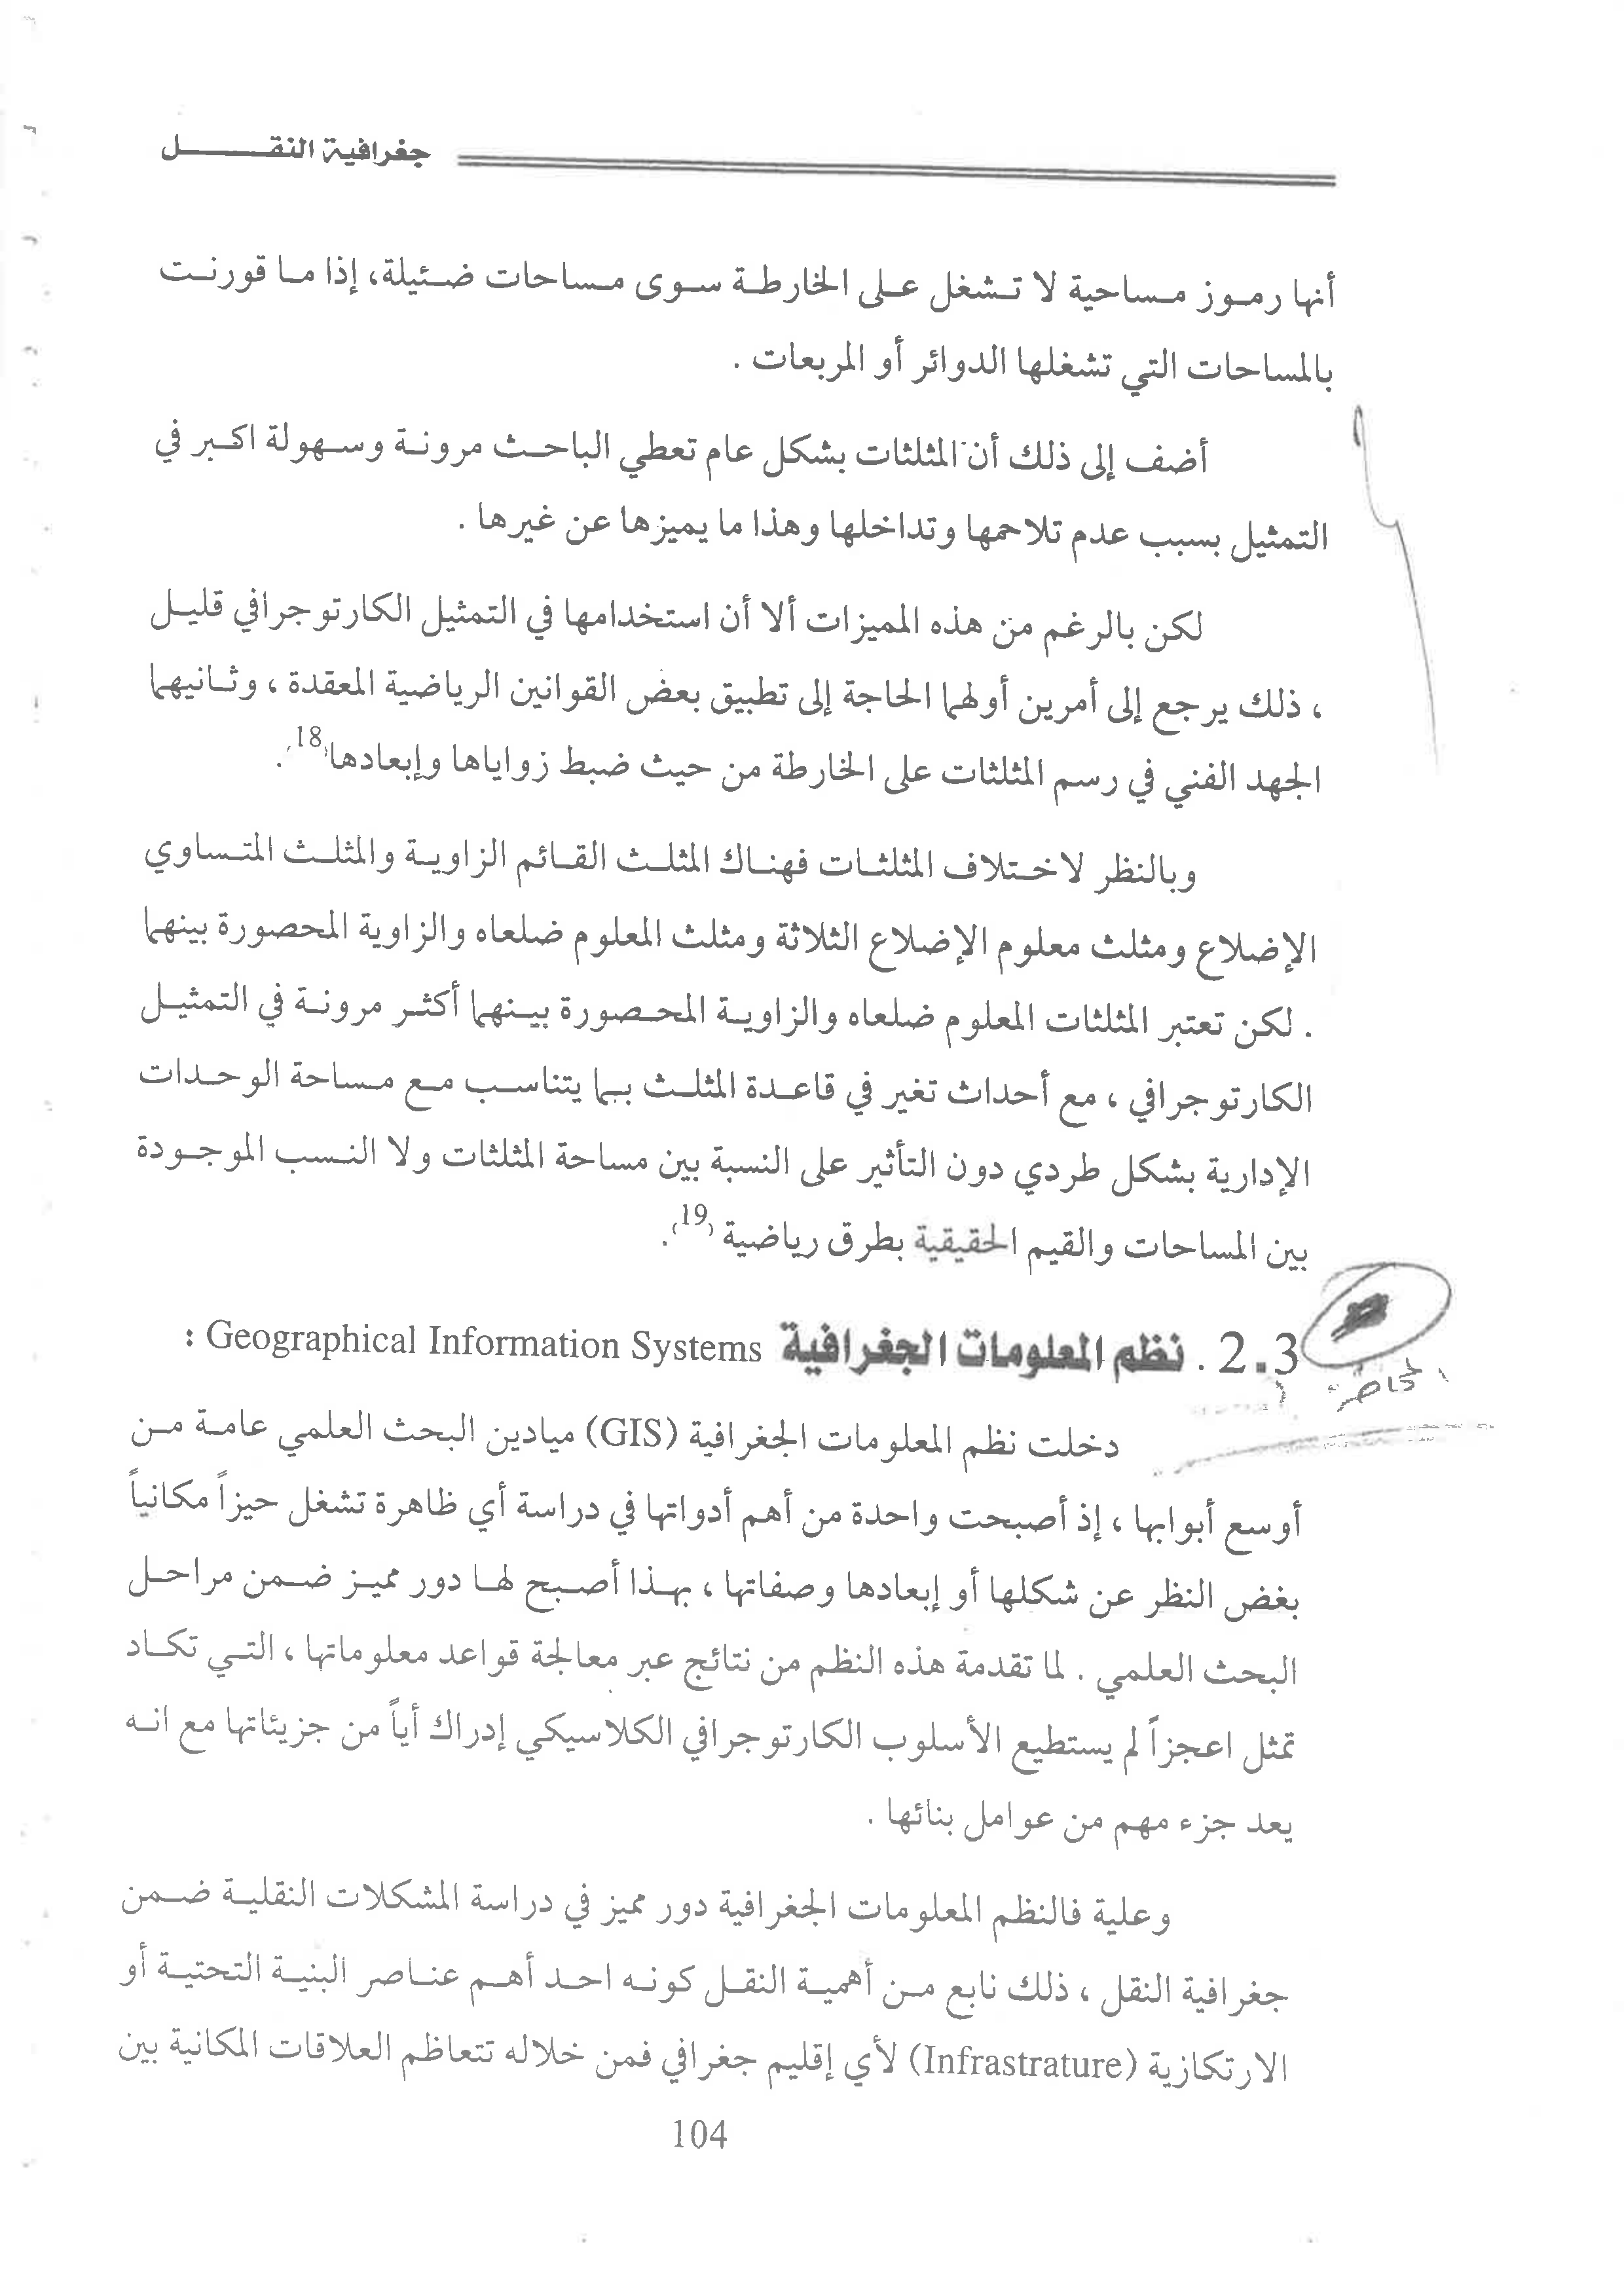 جغرافية النقـــــــل
أنها رموز مساحية لا تشغل على الخارطة سوى مساحات ضئيلة، إذا ما قورنت
بالمساحات التي تشغلها الدوائر أو المربعات .
أضف إلى ذلك أن المثلثات بشكل عام تعطي الباحث مرونة وسهولة اكبر في
التمثيل بسبب عدم تلاحمها وتداخلها وهذا ما يميزها عن غيرها .
لكن بالرغم من هذه المميزات ألا أن استخدامها في التمثيل الكارتوجرافي قليل
، ذلك يرجع إلى أمرين أولهما الحاجة إلى تطبيق بعض القوانين الرياضية المعقدة ، وثانيهما
الجهد الفني في رسم المثلثات على الخارطة من حيث ضبط زواياها وإبعادها(18).
وبالنظر لاختلاف المثلثات فهناك المثلث القائم الزاوية والمثلث المتساوي
الإضلاع ومثلث معلوم الإضلاع الثلاثة ومثلث المعلوم ضلعاه والزاوية المحصورة بينهما
. لكن تعتبر المثلثات المعلوم ضلعاه والزاوية المحصورة بينهما أكثر مرونة في التمثيل
الكارتوجرافي ، مع أحداث تغير في قاعدة المثلث بما يتناسب مع مساحة الوحدات
الإدارية بشكل طردي دون التأثير على النسبة بين مساحة المثلثات ولا النسب الموجودة
بين المساحات والقيم الحقيقية بطرق رياضية (19).
2.3 . نظم المعلومات الجغرافية Geographical Information Systems :
دخلت نظم المعلومات الجغرافية (GIS) ميادين البحث العلمي عامة من
أوسع أبوابها ، إذ أصبحت واحدة من أهم أدواتها في دراسة أي ظاهرة تشغل حيزاً مكانياً
بغض النظر عن شكلها أو إبعادها وصفاتها ، بهذا أصبح لها دور مميز ضمن مراحل
البحث العلمي . لما تقدمة هذه النظم من نتائج عبر معالجة قواعد معلوماتها ، التي تكاد
تمثل اعجزاً لم يستطيع الأسلوب الكارتوجرافي الكلاسيكي إدراك أياً من جزيئاتها مع انه
يعد جزء مهم من عوامل بنائها .
وعلية فالنظم المعلومات الجغرافية دور مميز في دراسة المشكلات النقلية ضمن
جغرافية النقل ، ذلك نابع من أهمية النقل كونه احد أهم عناصر البنية التحتية أو
الارتكازية (Infrastrature) لأي إقليم جغرافي فمن خلاله تتعاظم العلاقات المكانية بين
104